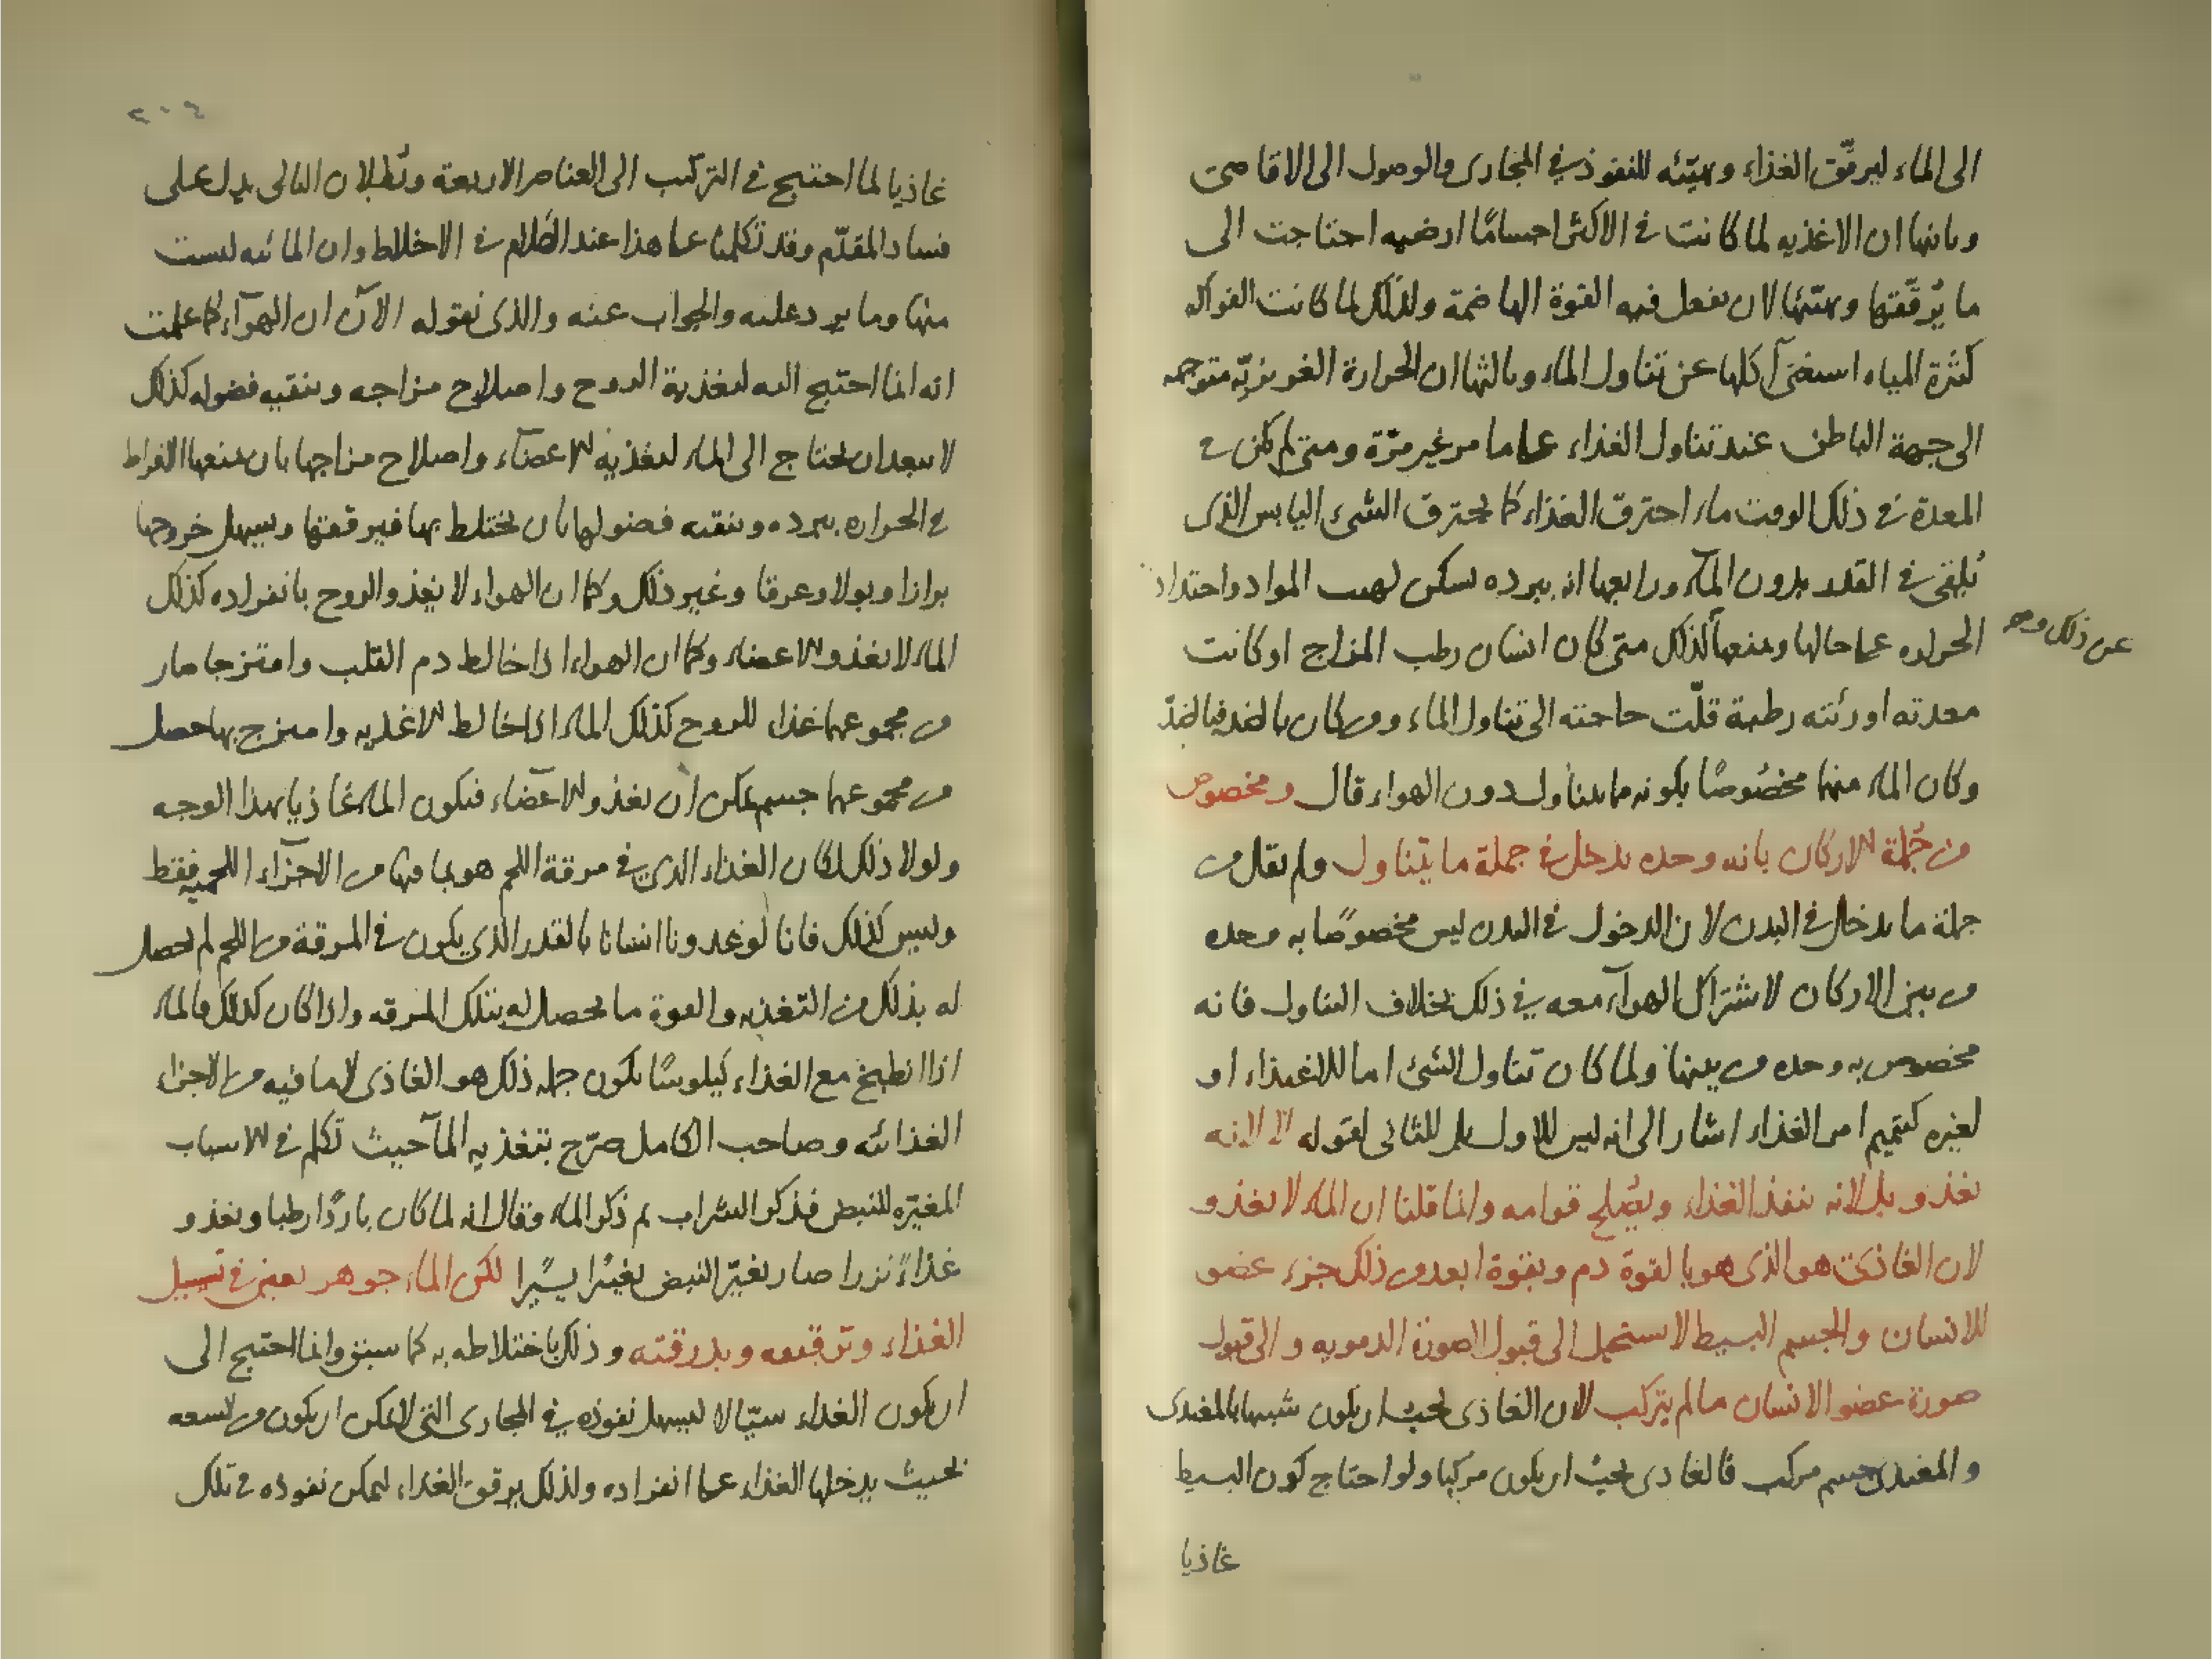 الى الماء ليرقق الغذاء ويهيئه للنفوذ في المجارى والوصول الى الاقاصى
وثانيها ان الاغذيه لما كانت في الاكثر اجسامًا ارضيه احتاجت الى
ما يُرقّقها ويهيئها لان يفعل فيه القوة الهاضمة ولذلك لما كانت الفواكه
كثرة المياه استغنى آكلها عن تناول الماء وثالثها ان الحرارة الغريزيّة متوجهه
الى جهة الباطن عند تناول الغذاء على ما مر غير مرّة ومتى لم يكن في
المعدة في ذلك الوقت ماء احترق الغذاء كما يحترق الشىء اليابس الذى
يُلقى في القدر بدون المآء ورابعها انه ببرده يسكن لهيب المواد واحتداد
الحراره على حالها ويمنعها لذلك متى كان انسان رطب المزاج او كانت
عن ذلك وهو
معدته او رئته رطبة قلّت حاجته الى تناول الماء ومن كان بالضد فبالضدّ
وكان الماء منها مخصُوصًا بكونه مما يتناول دون الهواء قال ومخصوص
من جُملة الاركان بانه وحده يدخل في جملة ما يتناول ولم يقل من
جملة ما يدخل في البدن لان الدخول في البدن ليس مخصوصًا به وحده
من بين الاركان لاشتراك الهوآء معه في ذلك بخلاف التناول فانه
مخصوص به وحده من بينها ولما كان تناول الشئ اما للاغتذاء او
لغيره كتتميم امر الغذاء اشار الى انه ليس للاول بل للثانى بقوله لا لانه
يغذو بل لانه ينفذ الغذاء ويُصلح قوامه وانما قلنا ان الماء لا يغذو
لان الغاذى هو الذى هو بالقوة دم وبقوة ابعد من ذلك جزء عضو
للانسان والجسم البسيط لا يستحيل الى قبول الصورة الدمويه والى قبول
صورة عضو الانسان ما لم يتركب لان الغاذى يجب ان يكون شبيها بالمغتذى
والمغتذى جسم مركب فالغاذى يجب ان يكون مركبا ولو احتاج كون البسيط
غاذيا
غاذيا لما احتيج في التركيب الى العناصر الاربعة وبُطلان التالى يدل على
فساد المقدّم وقد تكلمنا على هذا عند الكلام في الاخلاط وان المائيه ليست
منها وما يرد عليه والجواب عنه والذى نقوله الآن ان الهوآء كما علمت
انه انما احتيج اليه لتغذية الروح واصلاح مزاجه وتنقيه فضوله كذلك
لا يبعد ان يحتاج الى الماء لتغذيه الاعضآء واصلاح مزاجها بان يمنعها الافراط
في الحراره ببرده وينقيه فضولها بان يختلط بها فيرققها ويسهل خروجها
برازا وبولا وعرقا وغير ذلك وكما ان الهواء لا يغذو الروح بانفراده كذلك
الماء لا يغذو الاعضاء وكما ان الهواء اذا خالط دم القلب وامتزجا صار
من مجموعهما غذاء للروح كذلك الماء اذا خالط الاغذيه وامتزج بها حصل
من مجموعهما جسم يمكن ان يغذو الاعضاء فيكون الماء غاذيا بهذا الوجه
ولولا ذلك لكان الغذاء الذى في مرقة اللحم هو بما فيها من الاجزآء اللحميه فقط
وليس كذلك فانا لو غذونا انسانا بالقدر الذى يكون في المرقة من اللحم لم يحصل
له بذلك من التغذيه والقوة ما يحصل له بتلك المرقه واذا كان كذلك فالماء
اذا انطبخ مع الغذاء كيلوسًا يكون جمله ذلك هو الغاذى لا ما فيه من الاجزاء
الغذائيه وصاحب الكامل صرّح بتغذيه المآ حيث تكلم في الاسباب
المغيّره للنبض فذكر الشراب ثم ذكر الماء وقال انه لما كان باردًا رطبا ويغذو
غذاءً نزرا صار يغيّر النبض تغييرًا يسيرًا لكن الماء جوهر يعين في تسييل
الغذاء وترقيقه وبدرقته وذلك باختلاطه به كما سبق وانما احتيج الى
ان يكون الغذاء سيّالا ليسهل نفوذه في المجارى التى لا يمكن ان يكون من السعه
بحيث يدخلها الغذاء على انفراده ولذلك يرقق الغذاء ليمكن نفوذه في تلك